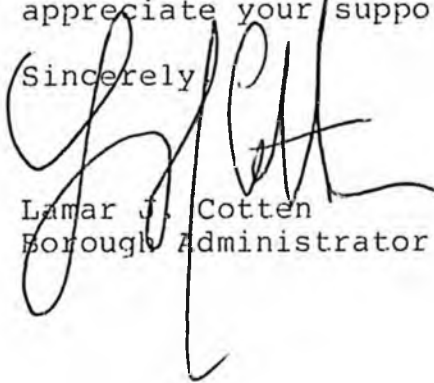 appreciate your suppo
Sincerely
Lamar J. Cotten
Borough Administrator